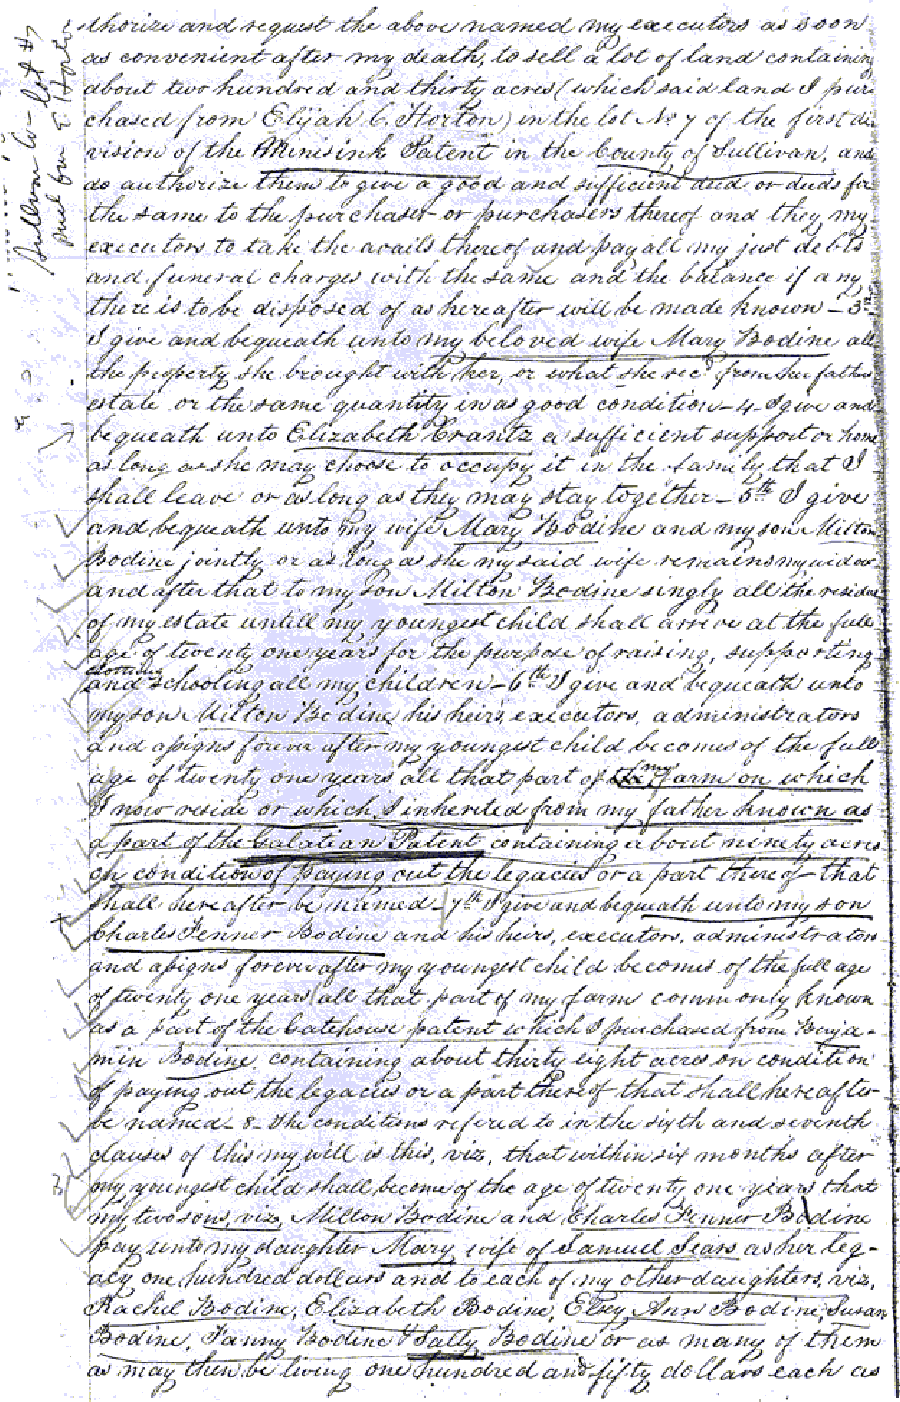 thorize and request the above named my executors as soon
as convenient after my death, to sell a lot of land containing
about two hundred and thirty acres (which said land I pur
chased from Elijah C. Horton) in the lot No 7 of the first di
vision of the Minisink Patent in the County of Sullivan, and
do authorize them to give a good and sufficient deed or deeds for
the same to the purchaser or purchasers thereof and they my
executors to take the avails thereof and pay all my just debts
and funeral charges with the same and the balance if any
there is to be disposed of as hereafter will be made known - 3rd
I give and bequeath unto my beloved wife Mary Bodine all
the property she brought with her, or what she recd from her fathers
estate or the same quantity in as good condition - 4 - I give and
bequeath unto Elizabeth Crantz a sufficient support or home
as long as she may choose to occupy it in the family that I
shall leave or as long as they may stay together - 5th I give
and bequeath unto my wife Mary Bodine and my son Milton
Bodine jointly or as long as she my said wife remains my widow
and after that to my son Milton Bodine singly all the residue
of my estate untill my youngest child shall arrive at the full
age of twenty one years for the purpose of raising, supporting
clothing
and schooling all my children - 6th I give and bequeath unto
my son Milton Bodine his heirs, executors, administrators
and assigns forever after my youngest child becomes of the full
age of twenty one years all that part of my farm on which
I now reside or which I inherited from my father known as
a part of the Galatian Patent containing about ninety acres
on condition of paying out the legacies or a part thereof that
shall hereafter be named - 7th I give and bequeath unto my son
Charles Fenner Bodine and his heirs, executors, administrators
and assigns forever after my youngest child becomes of the full age
of twenty one years all that part of my farm commonly known
as a part of the Catehouse patent which I purchased from Benja-
min Bodine, containing about thirty eight acres on condition
of paying out the legacies or a part thereof that shall hereafter
be named - 8 - The conditions refered to in the sixth and seventh
clauses of this my will is this, viz, that within six months after
my youngest child shall become of the age of twenty one years that
my two sons, viz, Milton Bodine and Charles Fenner Bodine
pay unto my daughter Mary wife of Samuel Sears as her leg-
acy one hundred dollars and to each of my other daughters, viz,
Rachel Bodine, Elizabeth Bodine, Elsey Ann Bodine, Susan
Bodine, Fanny Bodine & Sally Bodine or as many of them
as may then be living one hundred and fifty dollars each as